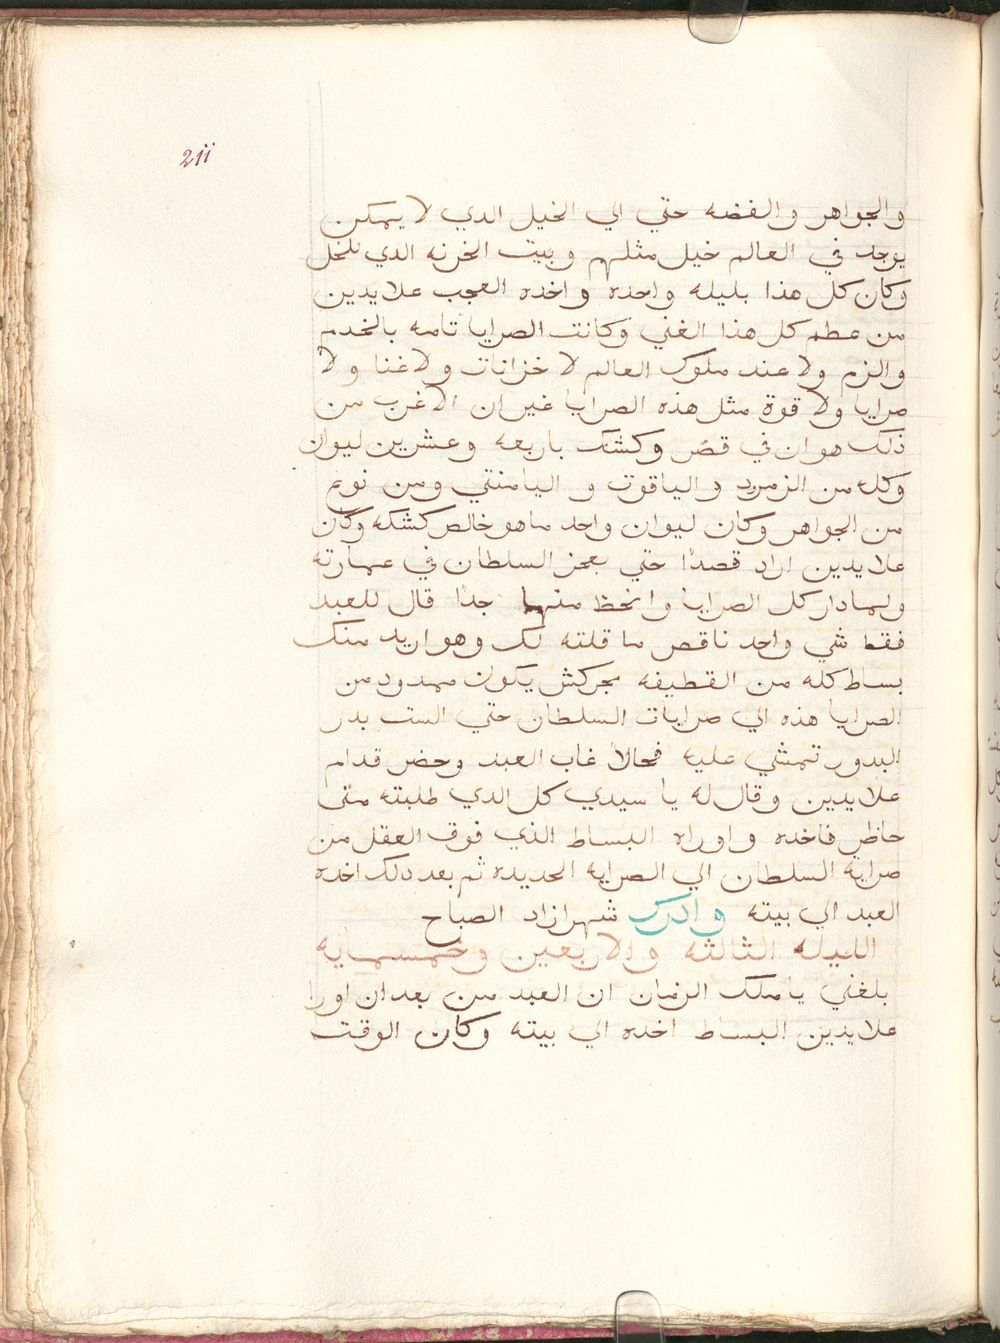 211
والجواهر والفضه حتي الي الخيل الدي لا يمكن
يوجد في العالم خيل مثلهم وبيت الخزنه الدي للخل
وكان كل هذا بليله واحده واخده العجب علايدين
من عظم كل هذا الغني وكانت الصرايا تامه بالخدم
والزم ولا عند ملوك العالم لا خزانات ولا غنا ولا
صرايا ولا قوة مثل هذه الصرايا غير ان الاغرب من
ذلك هو ان في قصر وكشك باربعه وعشرين ليوان
وكله من الزمرد والياقوت و اليامنتي ومن نوع
من الجواهر وكان ليوان واحد ما هو خالص كشكه وكان
علايدين اراد قصدًا حتي يعجز السلطان في عمارته
ولما دار كل الصرايا وانحظ منها جدًا قال للعبد
فقط شي واحد ناقص ما قلته لك وهو اريد منك
بساط كله من القطيفه مجركش يكون ممدود من
الصرايا هذه الي صرايات السلطان حتي الست بدر
البدور تمشي عليه فحالاً غاب العبد وحضر قدام
علايدين وقال له يا سيدي كل الدي طلبته متي
حاظر فاخده واوراه البساط الذي فوق العقل من
صراية السلطان الي الصرايه الجديده ثم بعد دلك اخده
العبد الي بيته وادرك شهرازاد الصباح
الليله الثالثه والاربعين وخمسمايه
بلغني يا ملك الزمان ان العبد من بعد ان اورا
علايدين البساط اخده الي بيته وكان الوقت